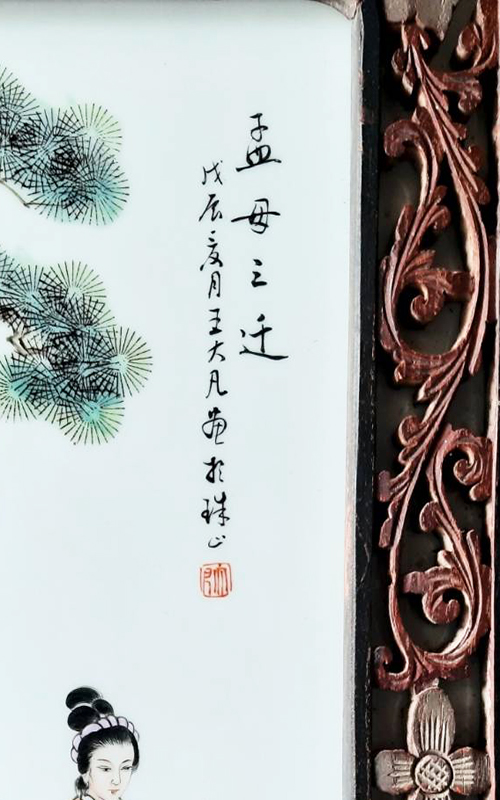 孟母三迁
戊辰亥月王大凡画於珠山